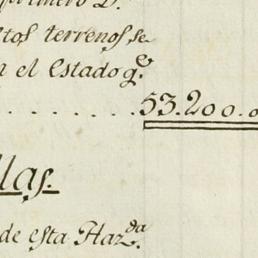 primero D.
tos terrenos se
n el estado q.e
. . . . . . . . 53.200.0
llas.
de esta Haz.da